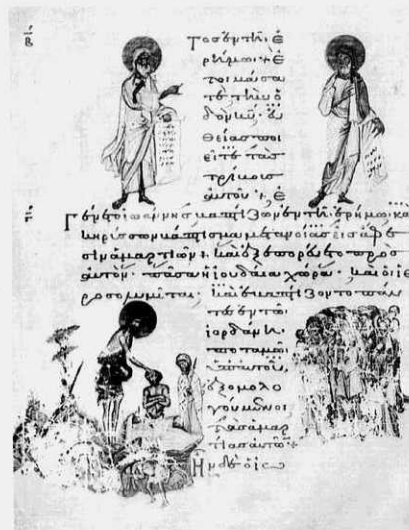 τος ἐν τῆ ἐ
ρήμω· ἑ
τοιμάσα
τε τὴν ὁ
δὸν κυ· εὐ
θείας ποι
εῖτε τὰς
τρίβους
αὐτοῦ· ἐ
γένετο ἰωάννης βαπτίζων ἐν τῆ ἐρήμω· κα
κηρύσσων βάπτισμα μετανοίας εἰς ἄφε
σιν ἁμαρτιῶν· καὶ ἐξεπορεύετο πρὸς
αὐτὸν· πᾶσα ἡ ἰουδαία χώρα· καὶ οἱ ἱε
ροσολυμῖται· καὶ ἐβαπτίζοντο πάν
τες ἐν τῶ
ἰορδάνη
ποταμῶ
ὑπ αὐτοῦ,
ἐξομολο
γούμενοι
τὰς ἁμαρ
τίας αὐτῶν
Ην δὲ ὁ ἰω